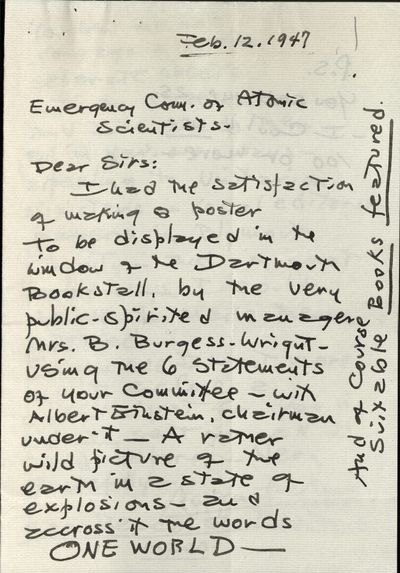 Feb. 12. 1947
Emergency Com. of Atomic
Scientists.
Dear Sirs:
I had the satisfaction
of making a poster
to be displayed in the
window of the Dartmouth
Bookstall, by the very
public-spirited manager
Mrs. B. Burgess-Wright-
using the 6 statements
of your Committee - with
Albert Einstein, chairman
under it - A rather
wild picture of the
earth in a state of
explosions - and
accross it the words
ONE WORLD -
And of Course
Suitable Books featured.